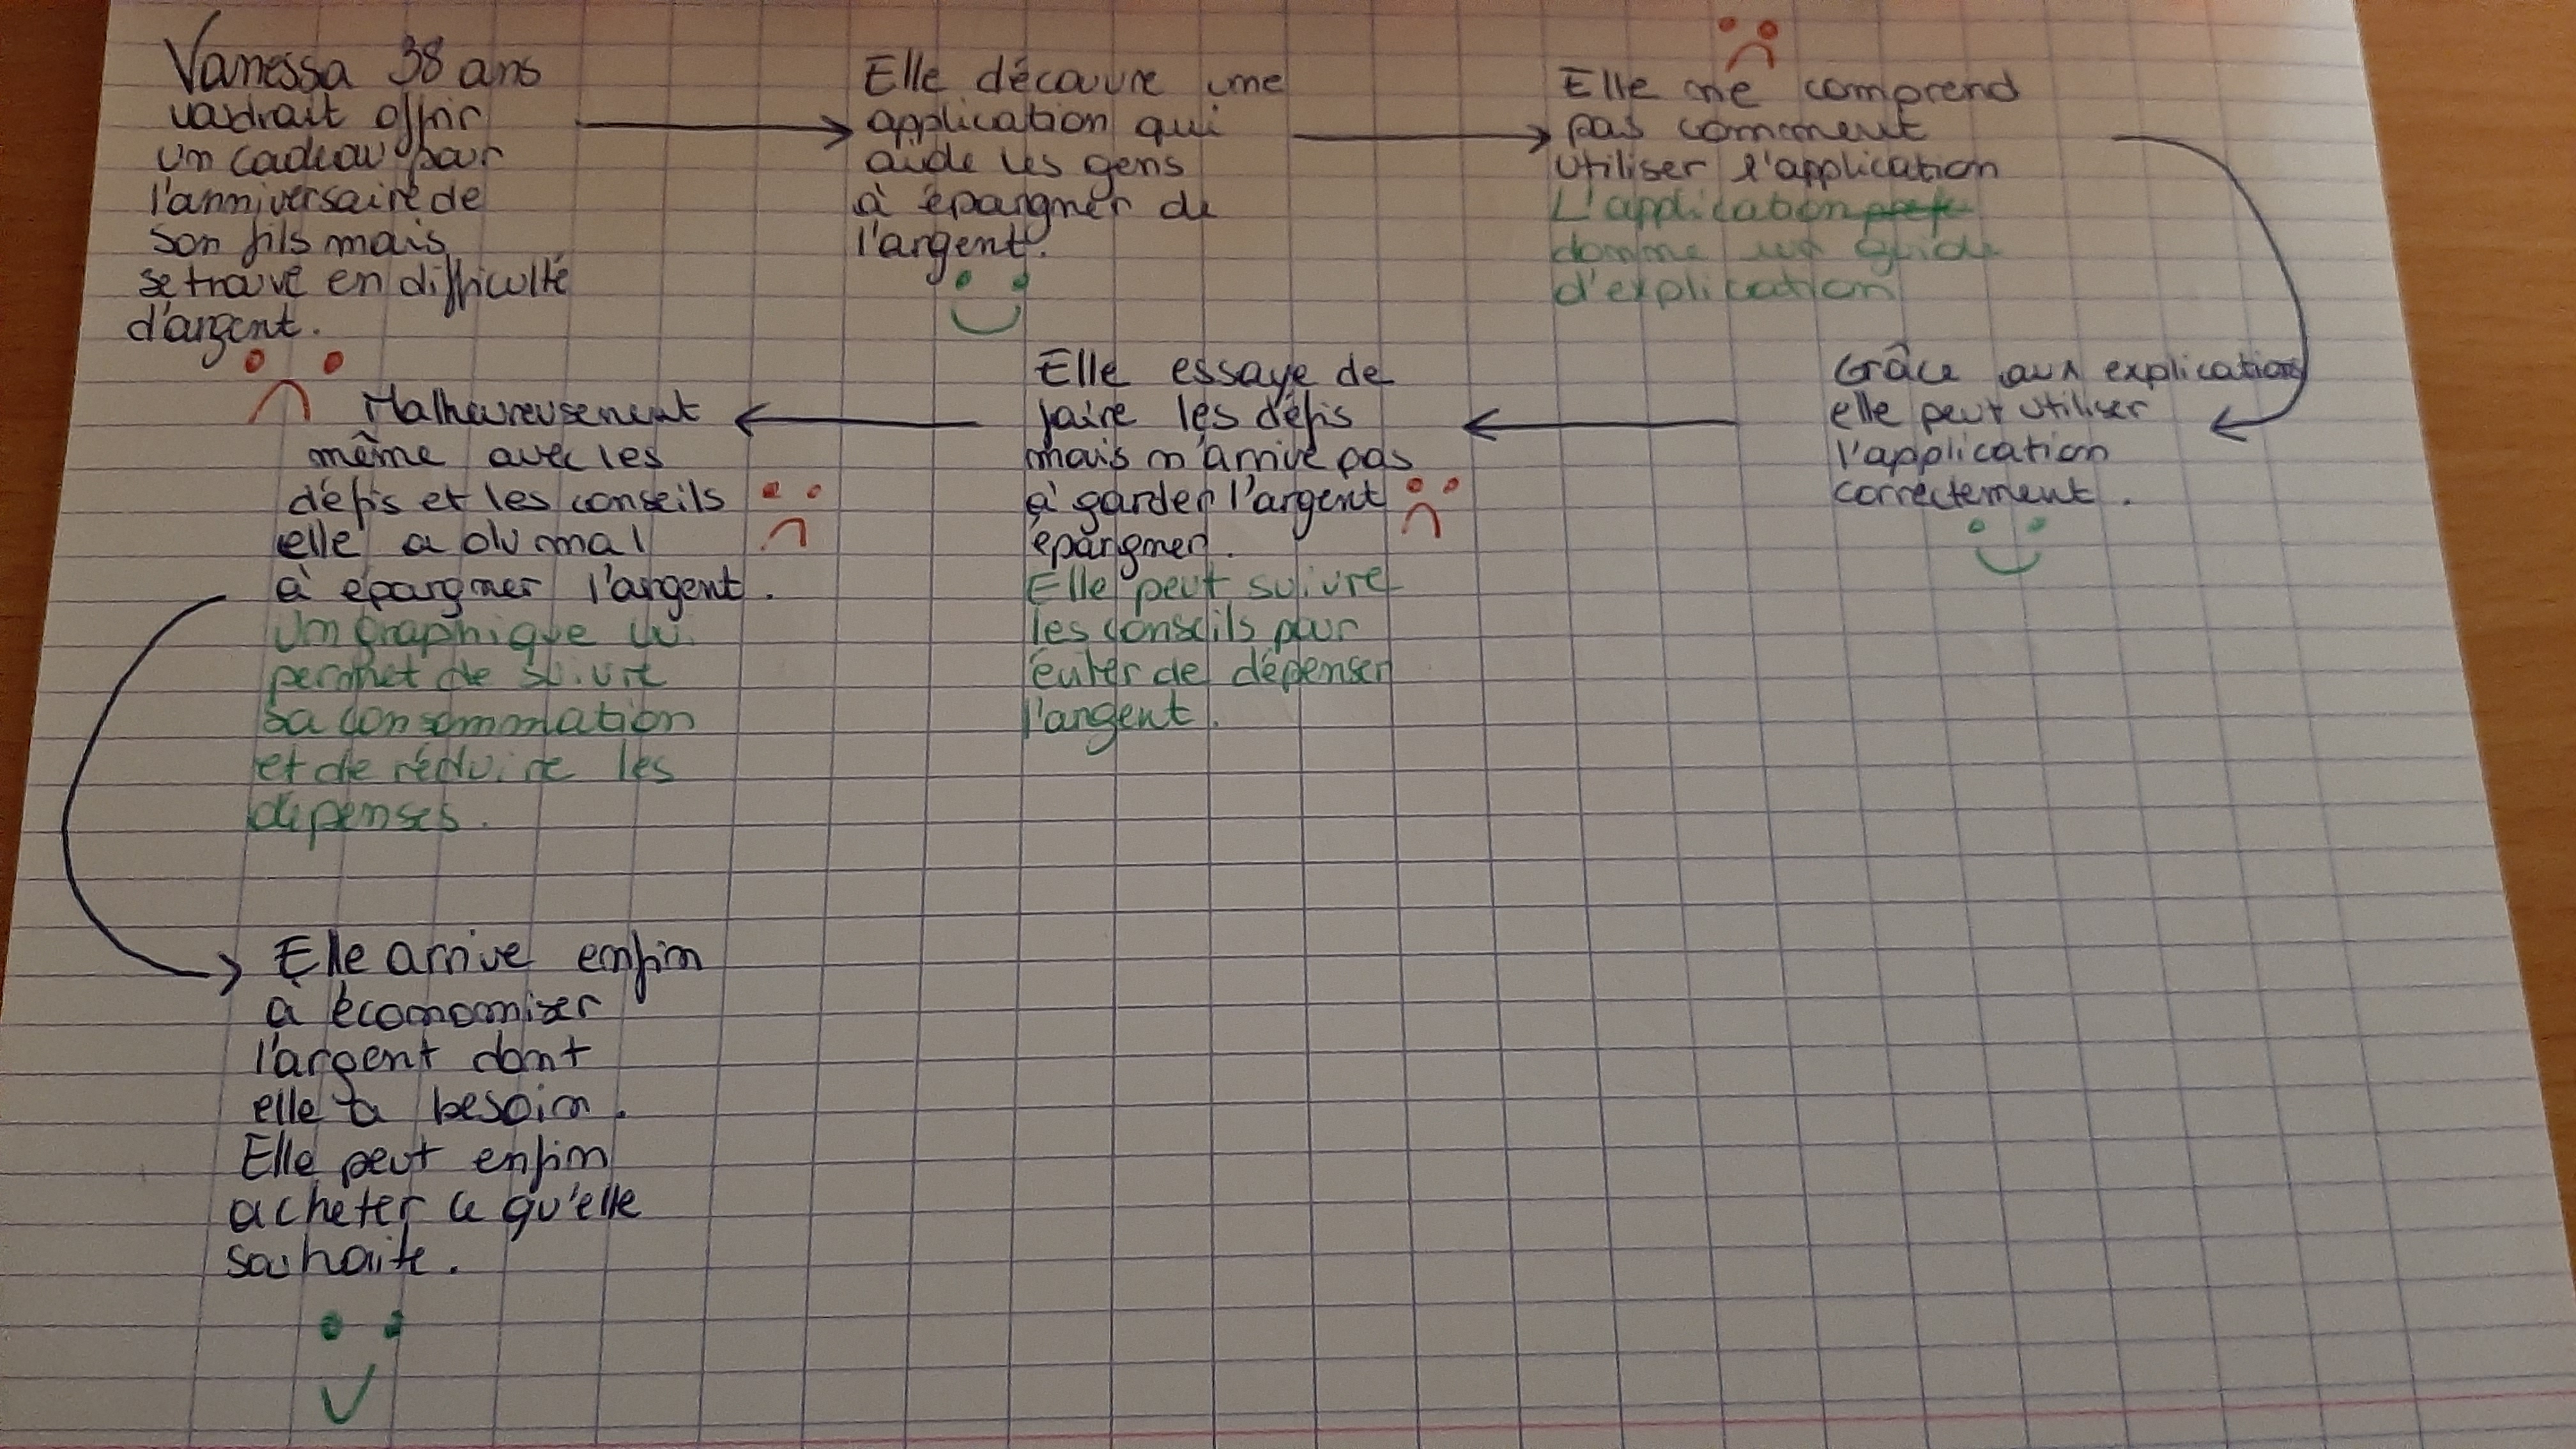 Vanessa 38 ans
vodrait offrir
un cadeau pour
l'anniversaire de
son fils mais
se trouve en difficulté
d'argent.
Elle découvre une
application qui
aide les gens
à épargner de
l'argent.
Elle ne comprend
pas comment
utiliser l'application
L'application
donne un guide
d'explication
Grâce aux explications
elle peut utiliser
l'application
correctement.
Elle essaye de
faire les défis
mais n'arrive pas
à garder l'argent
épargner.
Elle peut suivre
les conseils pour
éviter de dépenser
l'argent.
Malheureusement
même avec les
défis et les conseils
elle a du mal
à épargner l'argent.
Un graphique lui
permet de suivre
sa consommation
et de réduire les
dépenses.
Elle arrive enfin
a économiser
l'argent dont
elle a besoin.
Elle peut enfin
acheter ce qu'elle
souhaite.